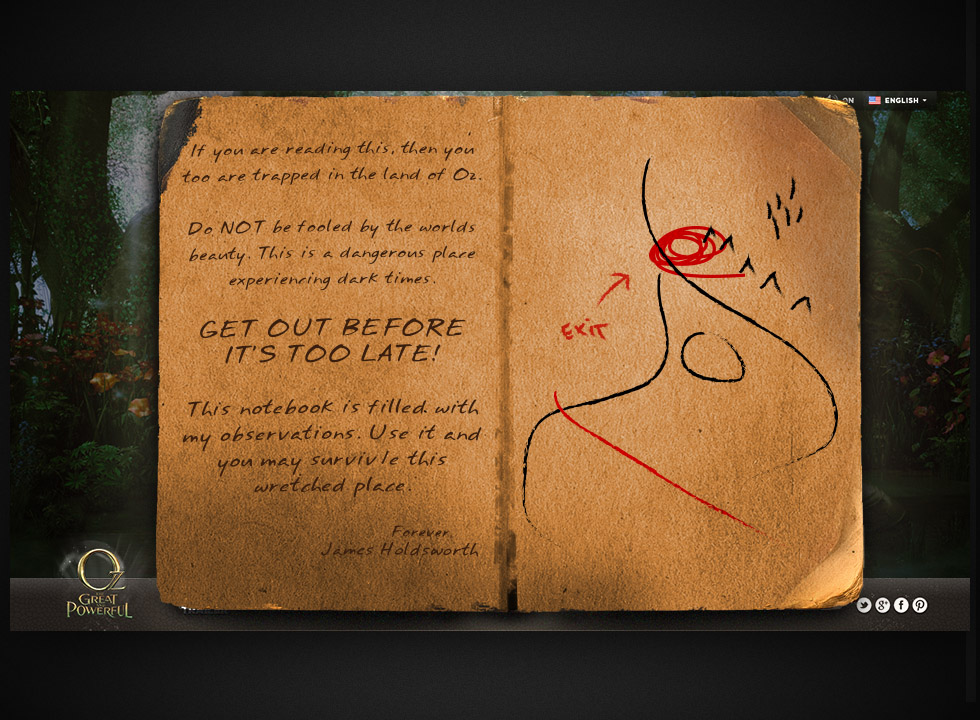 ON
ENGLISH
If you are reading this, then you
too are trapped in the land of Oz.
Do NOT be fooled by the worlds
beauty. This is a dangerous place
experiencing dark times.
GET OUT BEFORE
IT'S TOO LATE!
This notebook is filled with
my observations. Use it and
you may survivle this
wretched place.
Forever,
James Holdsworth
EXIT
OZ
GREAT
POWERFUL